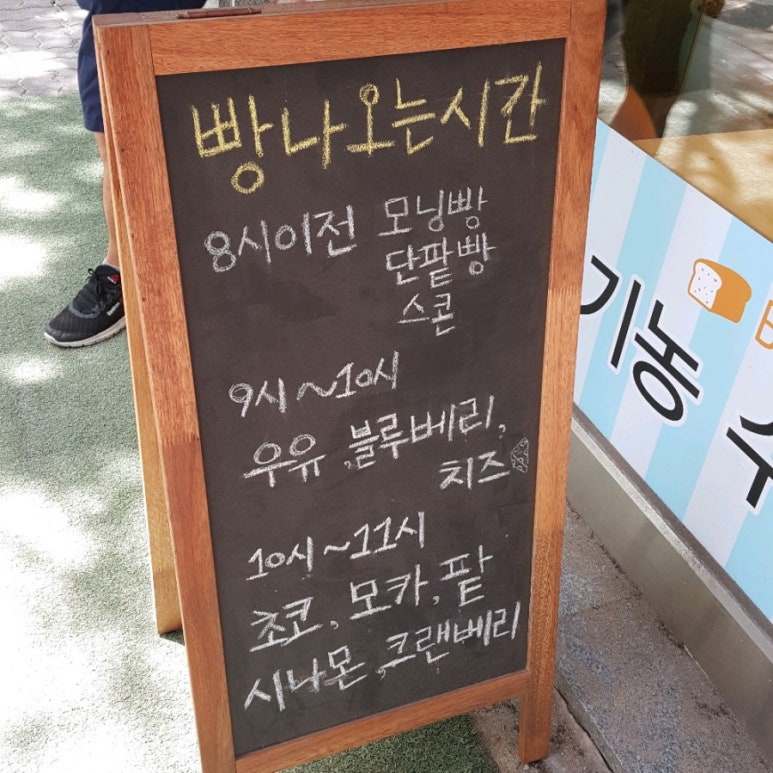 빵나오는시간
8시이전 모닝빵
단팥빵
스콘
9시~10시
우유, 블루베리,
치즈
10시~11시
초코, 모카, 팥
시나몬, 크랜베리
기농
수